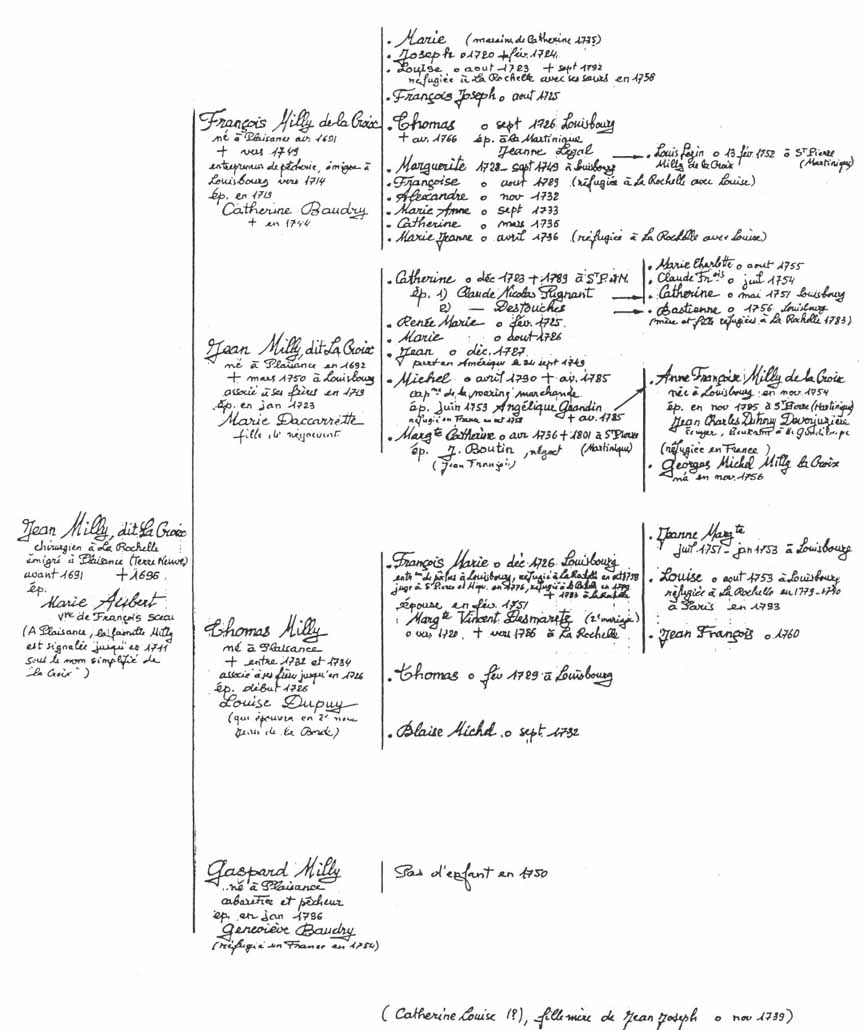 Jean Milly, dit La Croix
chirurgien à La Rochelle
émigré à Plaisance (Terre Neuve)
avant 1691 + 1696.
ép.
Marie Aubert
Vve de François Sceau
(A Plaisance, la famille Milly
est signalée jusqu'en 1711
sous le nom simplifié de
"la Croix")
François Milly de la Croix
né à Plaisance av. 1691
+ vers 1749
entrepreneur de pêcherie, émigre à
Louisbourg vers 1714
ép. en 1719
Catherine Baudry
+ en 1744
. Marie (marraine de Catherine 1735)
. Joseph o 1720 + fév. 1724.
. Louise o aout 1723 + sept 1792
réfugiée à La Rochelle avec ses sœurs en 1758
. François Joseph o aout 1725
. Thomas o sept 1726 Louisbourg
+ av. 1766 ép. à la Martinique
Jeanne Legal
. Louis o 13 fév. 1752 à St Pierre
Milly de la Croix (Martinique)
. Marguerite 1728 - sept 1749 à Louisbourg
. Françoise o aout (réfugiée à La Rochelle avec Louise)
. Alexandre o nov 1732
. Marie Anne o sept 1733
. Catherine o mars 1735
. Marie Jeanne o avril 1736 (réfugiée à La Rochelle avec Louise)
Jean Milly, dit La Croix
né à Plaisance en 1692
+ mars 1750 à Louisbourg
associé à ses frères en 1719
ép. en jan 1723
Marie Daccarrette
fille de négociant
. Catherine o déc 1723 + 1789 à St P. et M.
ép. 1) Claude Nicolas Pignant
2) — Destouches
. Marie Charlotte o aout 1755
. Claude Frçois o juil 1754
. Catherine o mai 1751 Louisbourg
. Bastienne o 1756 Louisbourg
(mère et filles réfugiées à La Rochelle 1783)
. Renée Marie o fév. 1725.
. Marie o aout 1726
. Jean o déc. 1727.
part en Amérique le 24 sept 1749
. Michel o avril 1730 + av. 1785
capne de la marine marchande
ép. juin 1753 Angélique Grandin
réfugiée en France en 1758 + av. 1785
. Margte Catherine o avr 1736 + 1801 à St Pierre
ép. J. Boutin, négoct (Martinique)
(Jean François)
. Anne Françoise Milly de la Croix
née à Louisbourg en nov 1754
ép. en nov 1785 à St Pierre (Martinique)
Jean Charles
(réfugiée en France)
. Georges Michel Milly la Croix
né en nov. 1756
Thomas Milly
né à Plaisance
+ entre 1732 et 1734
associé à ses frères jusqu'en 1726
ép. début 1726
Louise Dupuy
(qui épousera en 2e noce
Jean de la Borde)
. François Marie o déc. 1726 Louisbourg
réfugié à la Rochelle en 1758
épouse en fév. 1751
Margte Vincent Desmarets (2e mariage)
o vers 1720. + vers 1786 à La Rochelle
. Jeanne Margte
juil 1751 - jan 1753 à Louisbourg
. Louise o aout 1753 à Louisbourg
réfugiée à La Rochelle en 1779-1790
à Paris en 1793
. Jean François o 1760
. Thomas o fév 1729 à Louisbourg
. Blaise Michel o sept. 1732
Gaspard Milly
né à Plaisance
cabaretier et pêcheur
ép. en jan 1736
Geneviève Baudry
(réfugiée en France en 1754)
Pas d'enfant en 1750
(Catherine Louise (?), fille mère de Jean Joseph o nov 1739)